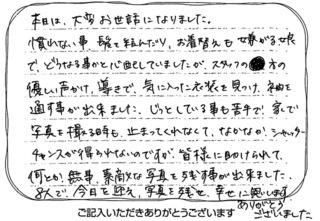 本日は、大変お世話になりました。
慣れない事、髪を結んだり、お着替えも嫌がる娘
で、どうなる事かと心配していましたが、スタッフの方の
優しい声かけ、導きで、気に入った衣装を見つけ、袖を
通す事が出来ました。じっとしている事も苦手で、家で
写真を撮る時も、止まってくれなくて、なかなか、シャッター
チャンスが得られないのですが、皆様に助けられて、
何とか無事、素敵な写真を残す事が出来ました。
3人で、今日を迎え、写真を残せ、幸せに思います
ありがとう
ございました。
ご記入いただきありがとうございます